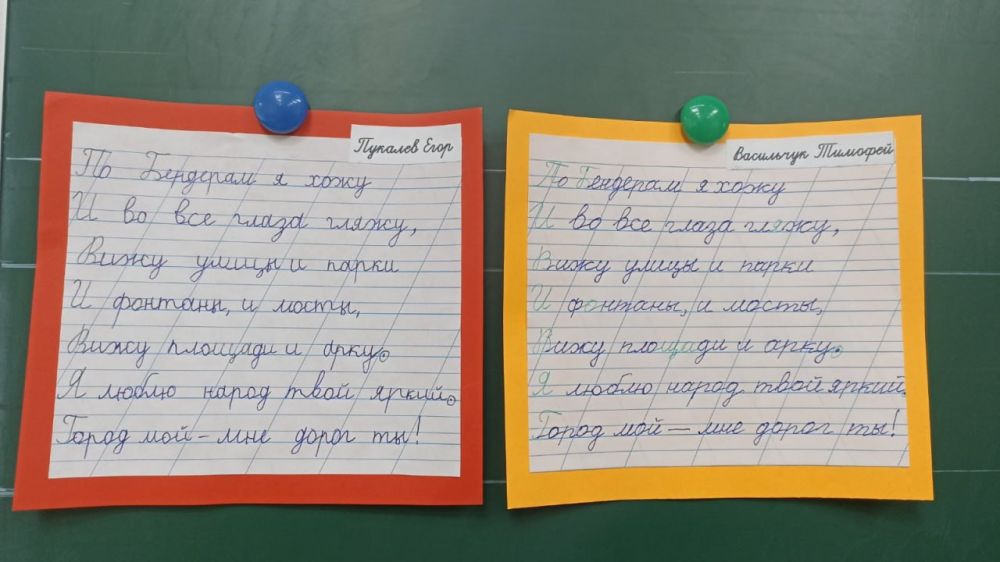 Пукалев Егор
По Бендерам я хожу
И во все глаза гляжу,
Вижу улицы и парки
И фонтаны, и мосты,
Вижу площади и арку.
Я люблю народ твой яркий.
Город мой – мне дорог ты!
Васильчук Тимофей
По Бендерам я хожу
И во все глаза гляжу,
Вижу улицы и парки
И фонтаны, и мосты,
Вижу площади и арку.
Я люблю народ твой яркий.
Город мой — мне дорог ты!